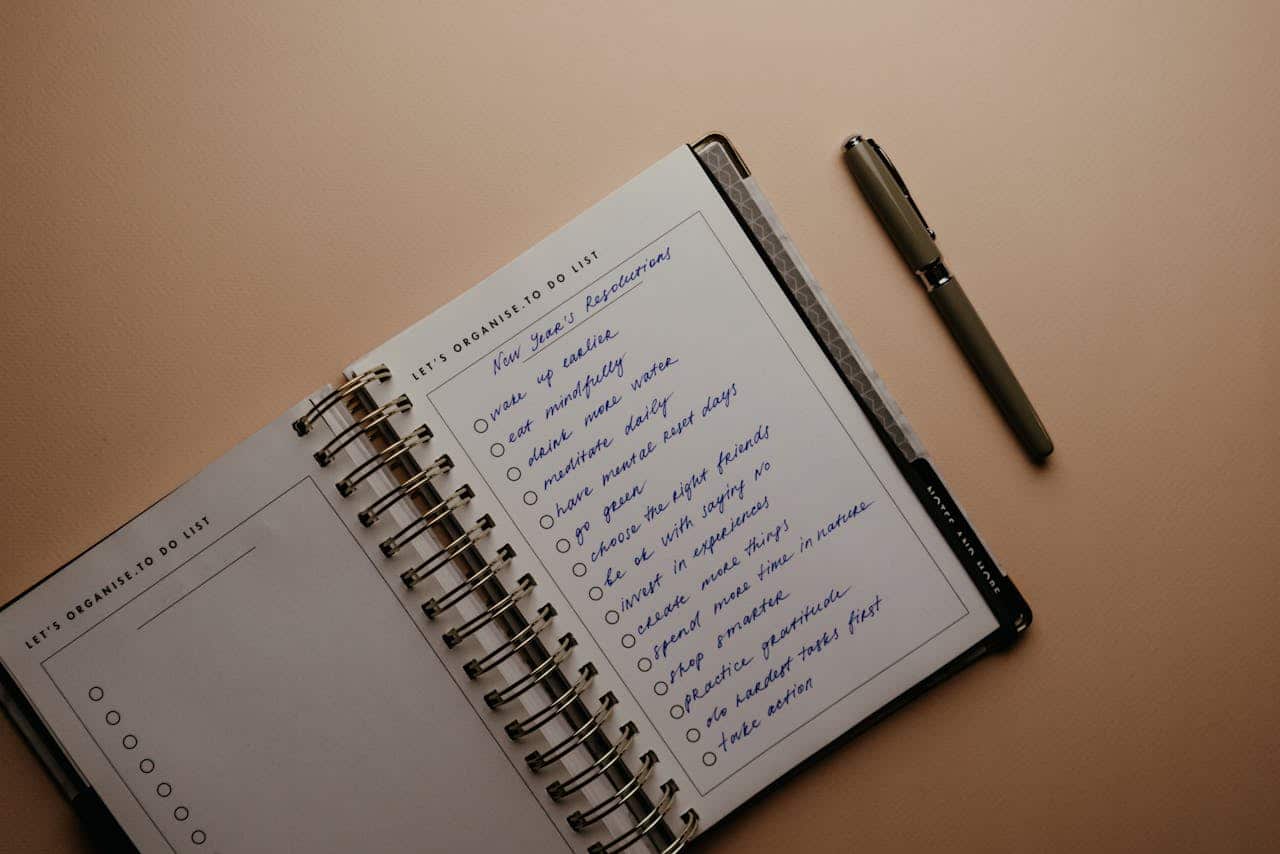 LET'S ORGANISE.TO DO LIST
LET'S ORGANISE.TO DO LIST
New Year's Resolutions
wake up earlier
eat mindfully
drink more water
meditate daily
have mental reset days
go green
choose the right friends
be ok with saying NO
invest in experiences
create more things
spend more time in nature
shop smarter
practice gratitude
do hardest tasks first
take action
NOTES AND MORE